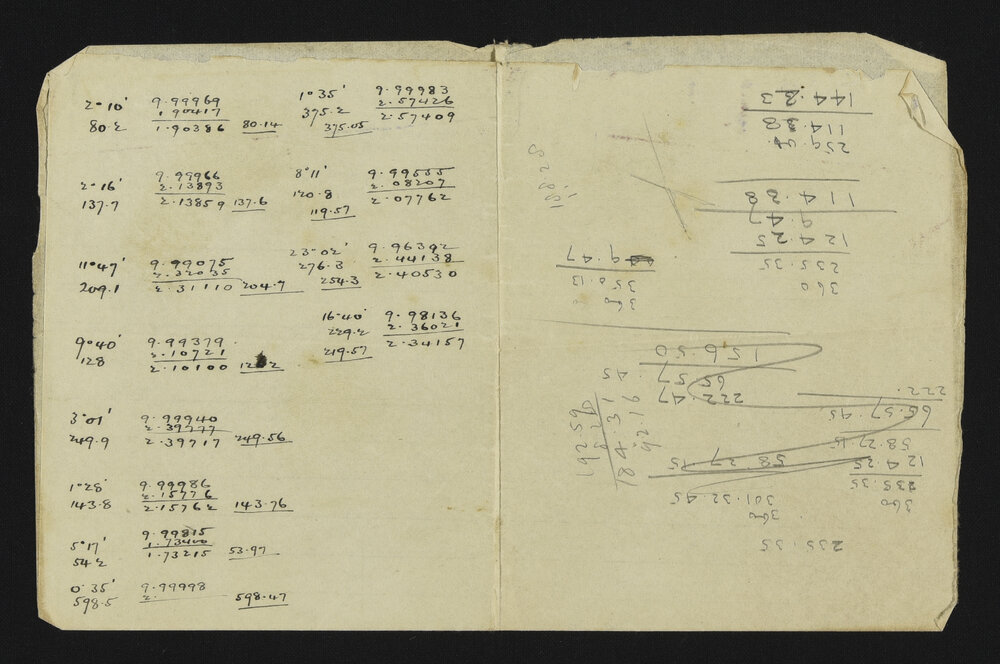 2°10' 9.99969
1.90417
80.2 1.90386 80.14
2°16' 9.99966
2.13893
137.7 2.13859 137.6
11°47' 9.99075
2.32035
209.1 2.31110 204.7
9°40' 9.99379
2.10721
128 2.10100
3°01' 9.99940
2.39777
249.9 2.39717 249.56
1°28' 9.99986
2.15776
143.8 2.15762 143.76
9.99815
5°17' 1.73400
54.2 1.73215 53.97
0°35' 9.99998
598.5 2. 598.47
1°35' 9.99983
375.2 2.57426
375.05 2.57409
8°11' 9.99555
120.8 2.08207
119.57 2.07762
23°02' 9.96392
276.3 2.44138
254.3 2.40530
16°40' 9.98136
229.2 2.36021
219.57 2.34157
235.35
360
301.32.45
58.27.15
360
235.35
124.25
58.27.15
65.57.45
222.
222.47
65.57.45
156.50
184.31
9216
360
350.13
9.47
360
235.35
124.25
9.47
114.38
114.38
144.23